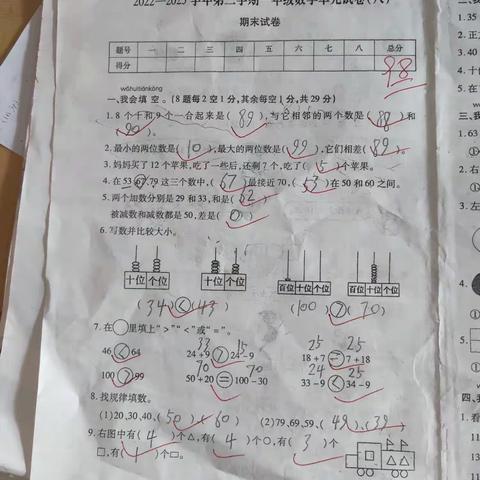 2022—2023学年第二学期一年级数学单元试卷(八)
期末试卷
题号 一 二 三 四 五 六 七 八 总分
得分 98
wǒ huì tián kòng
一、我会填空。(8题每2空1分,其余每空1分,共29分)
1. 8个十和9个一合起来是( 89 ),与它相邻的两个数是( 88 )和
( 90 )。
2. 最小的两位数是( 10 ),最大的两位数是( 99 ),它们相差( 89 )。
3. 妈妈买了12个苹果,吃了一些后,还剩7个,吃了( 5 )个苹果。
4. 在53、67、79这三个数中,( 67 )最接近70,( 53 )在50和60之间。
5. 两个加数分别是29和33,和是( 62 )
被减数和减数都是50,差是( 0 )
6. 写数并比较大小。
十位 个位 十位 个位 百位 十位 个位 百位 十位 个位
( 34 ) < ( 43 ) ( 100 ) > ( 70 )
7. 在○里填上“>”“<”或“=”。
33 15 25 25
46 < 64 24+9 > 24-9 18+7 = 7+18
70 70 24 25
100 > 99 50+20 = 100-30 33-9 < 34-9
8. 找规律填数。
(1)20、30、40、( 50 )、( 60 ) (2)79、69、59、( 49 )、( 39 )
9. 右图中有( 4 )个△,有( 4 )个○,有( 3 )个
□,有( 1 )个□。